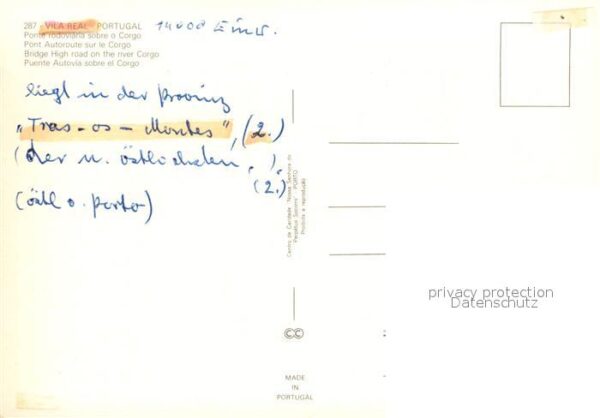 287 - VILA REAL - PORTUGAL
14000 Einw.
Ponte rodoviária sobre o Corgo
Pont Autoroute sur le Corgo
Bridge High road on the river Corgo
Puente Autovia sobre el Corgo
liegt in der Provinz
"Tras-os-Montes", (2.)
(der n. östlichsten, ),
(2.)
(östl v. Porto)
Centro de Caridade "Nossa Senhora do
Perpétuo Socorro" PORTO
Proibida a reprodução
CC
MADE
IN
PORTUGAL
privacy protection
Datenschutz